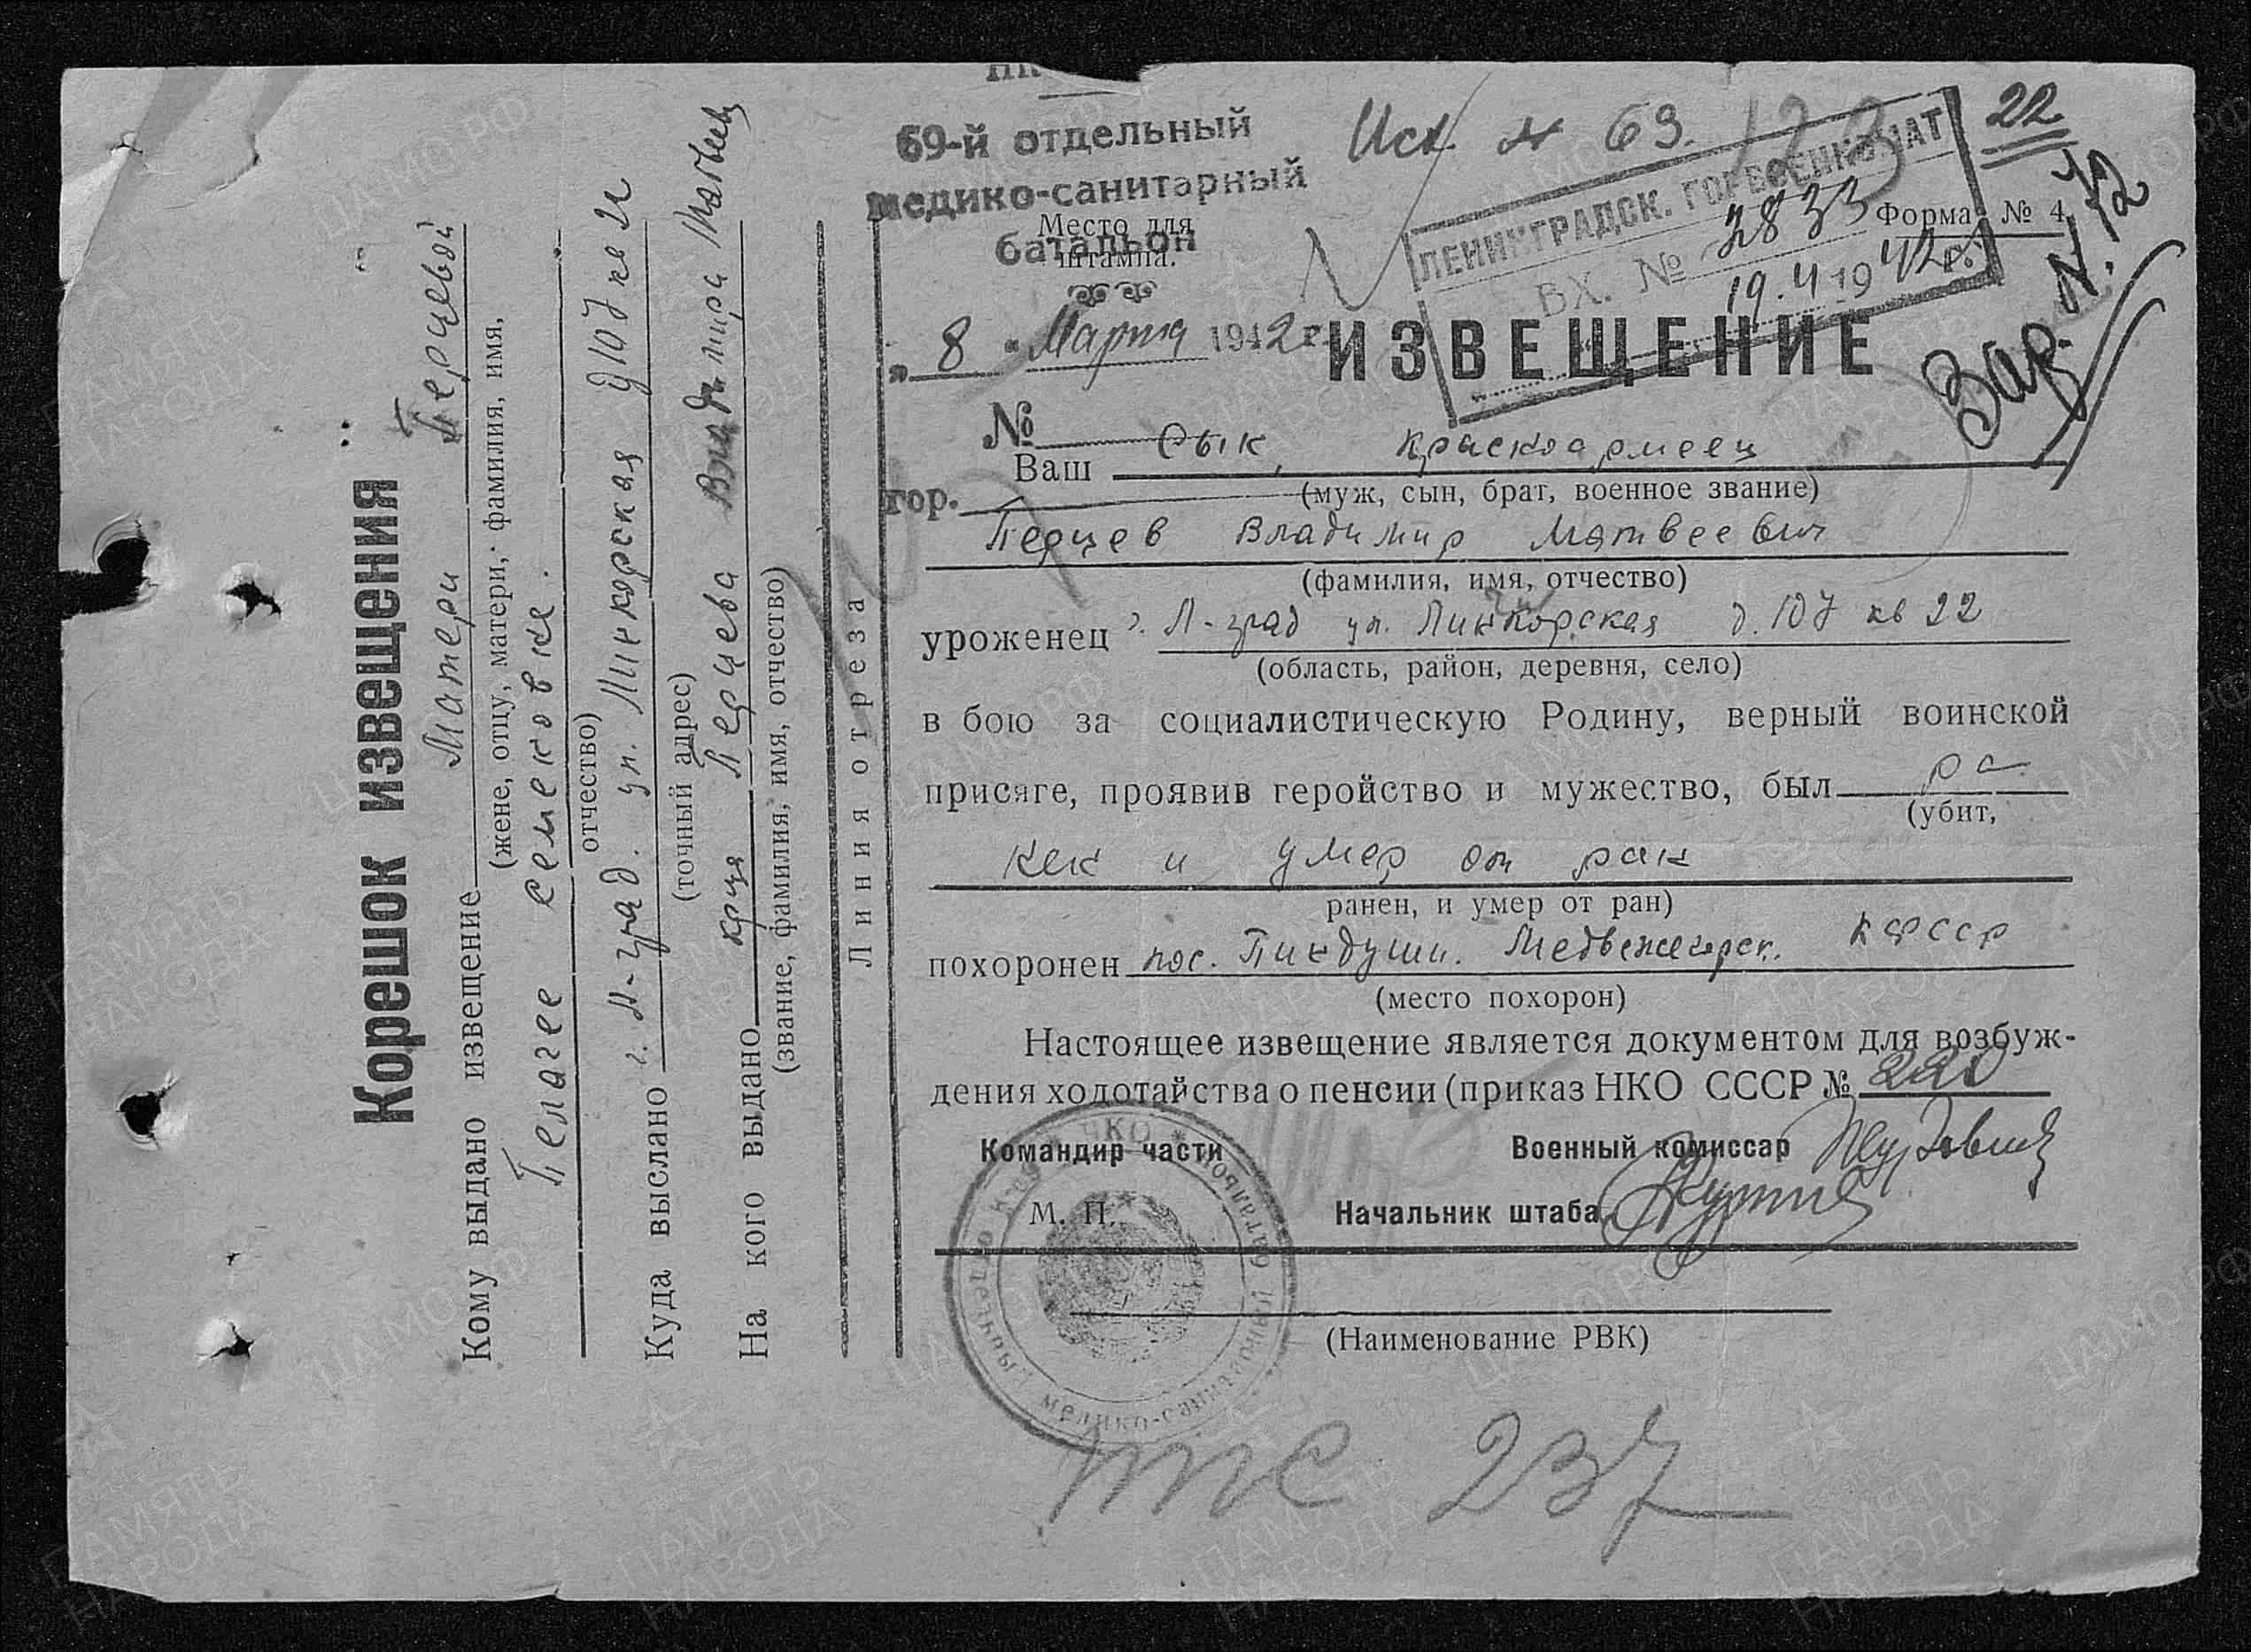 Корешок извещения
Кому выдано извещение Матери Перцевой
(жене, отцу, матери, фамилия, имя,
Пелагее Семеновне.
отчество)
Куда выслано г. Л-град. ул. Пинкорская д 107 кв 22
(точный адрес)
На кого выдано кр-ца Перцева Владимира Матвеев
(звание, фамилия, имя, отчество)
Линия отреза
69-й отдельный
медико-санитарный
батальон
Место для
штампа.
Исх. № 69.
22
ЛЕНИНГРАДСК. ГОРВОЕНКОМАТ
ВХ. № 2833
19.4 1942 г.
Форма № 4
Зар. N. 72
„ 8 “ Марта 1942 г.
ИЗВЕЩЕНИЕ
№
Ваш сын, красноармеец
гор.
(муж, сын, брат, военное звание)
Перцев Владимир Матвеевич
(фамилия, имя, отчество)
уроженец г. Л-град ул. Пинкорская д. 107 кв 22
(область, район, деревня, село)
в бою за социалистическую Родину, верный воинской
присяге, проявив геройство и мужество, был ра
(убит,
нен и умер от ран
ранен, и умер от ран)
похоронен пос. Пиндуши. Медвежегорск. КФССР
(место похорон)
Настоящее извещение является документом для возбуж-
дения ходотайства о пенсии (приказ НКО СССР № 220
Командир части
Военный комиссар
М. П.
Начальник штаба
(Наименование РВК)
237